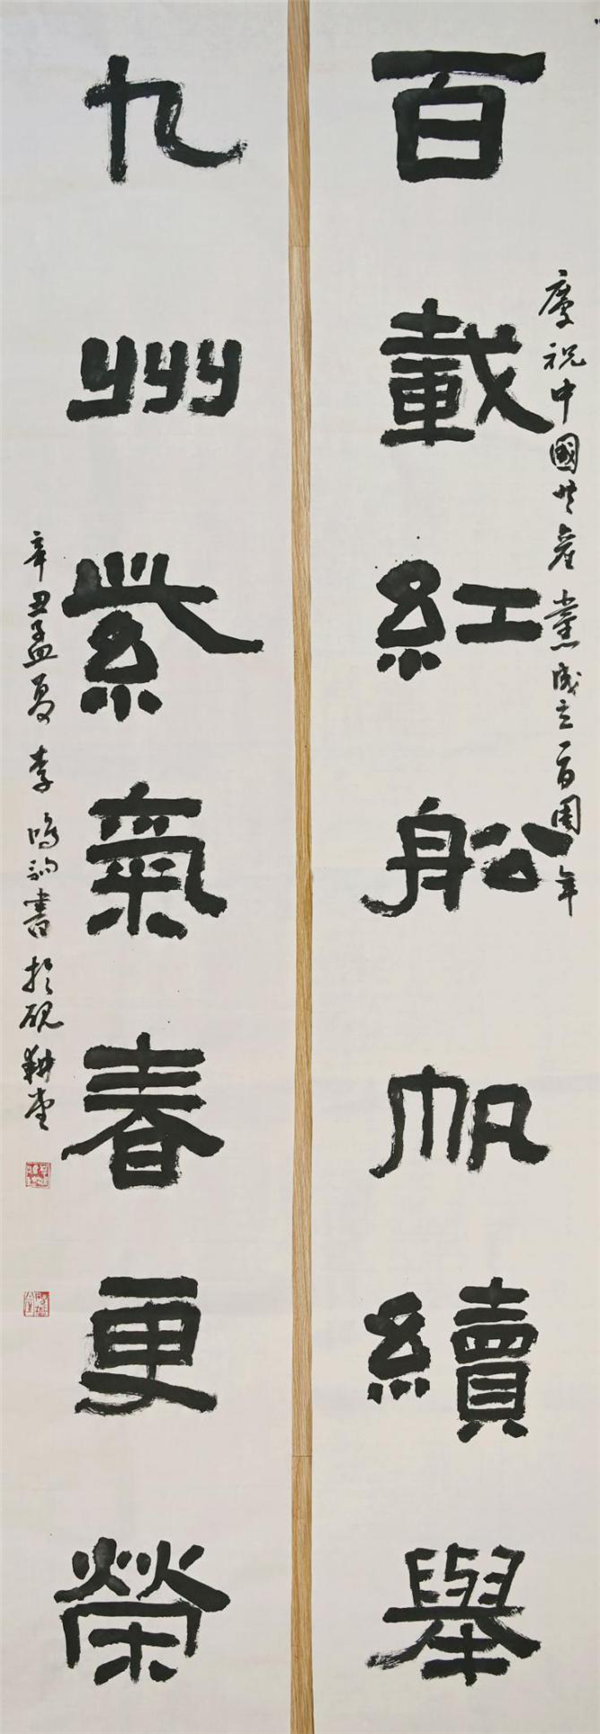 慶祝中國共產黨成立百周年
百載紅船帆續舉
九州紫氣春更榮
辛丑孟夏李鳴書於硯耕堂